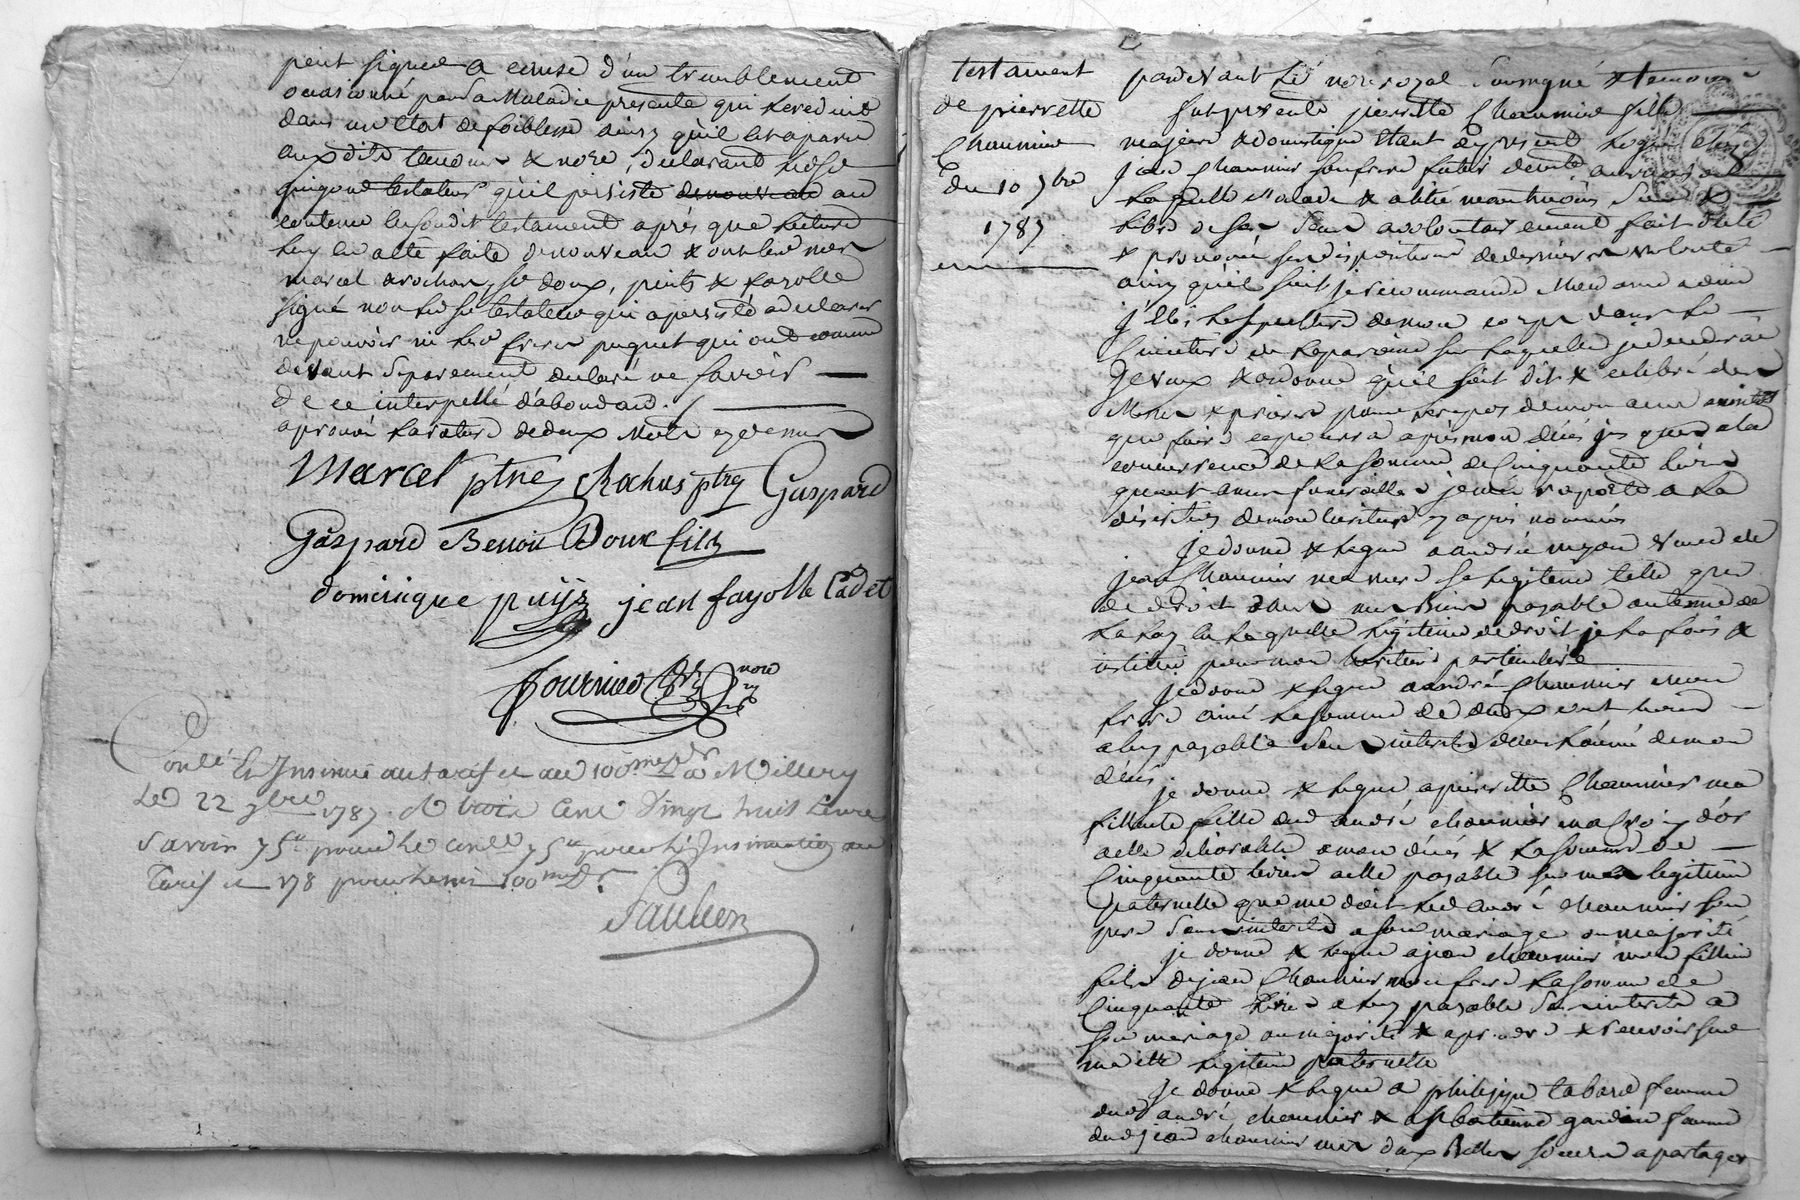 peut signer a cause d'un tremblement
occasionné par sa Maladie presente qui le reduit
dans un Etat de foiblesse ainsy qu'il est aparu
aux dits temoins & nore, declarant led sr
testateur qu'il persiste de nouveau au
contenu testament après que lecture
luy en a eté faite de nouveau & ont led mes
marcel & rochas, sr doux, puits & fayolle
signé non led sr testateur qui a persisté a declarer
ne pouvoir ni led freres puquet qui ont comme
devant separement declaré ne savoir
de ce interpellé d'abondant. /
aprouvé la rature de deux Mots cy dessus
Marcel ptre Rochas ptre Gaspard
Gaspard Benoit Doux fils
dominique puijs jean fayolle Cadet
fournier nore
Conlé Et Insinué au tarif et au 100me Dr a Millery
Le 22 9bre 1787. R trois Cent Vingt huit Livres
Savoir 75 pour le conlle 75 pour l'Insinuation au
Tarif et 178 pour le 100me Dr
testament
de pierrette
Chaumier
du 10 9bre
1787
pardevant le nore royal soussigné & temoins
fut presente pierrette Chaumier fille
majeure & domestique etant de present
jean Chaumier son frere
laquelle malade & alitée neantmoins
libre de ses sens a volontairement fait dicté
& prononcé ses dispositions de derniere volonté
ainsy qu'il suit je recommande Mon ame a dieu
j'elis la sepulture de mon corps dans le
Cimetiere de la paroisse sur laquelle je decederai
Je veux & ordonne qu'il soit dit & celebré des
Messes & prieres pour le repos de mon ame aussitot
que faire se pourra après mon décès jusques a la
concurrence de la somme de Cinquante livres
quant a mes funerailles je m'en raporte a la
discretion de mon heritier cy après nommé
Je donne & legue a andrée veuve de
jean Chaumier ma mere sa legitime telle que
de droit dans mes biens payable au terme de
la loy en laquelle legitime de droit je la fais &
institue pour mon heritiere particuliere
je donne & legue a andré Chaumier mon
frere ainé la somme de deux cent livres
a luy payable sans interets dans l'année de mon
décès
je donne & legue a pierrette Chaumier ma
filleule fille dud andré chaumier ma croix d'or
a elle delivrable a mon décès & la somme de
Cinquante livres a elle payable sur ma legitime
paternelle que me doit led andré chaumier son
pere sans interets a son mariage ou majorité
je donne & legue a jean chaumier mon filleul
fils de jean Chaumier mon frere la somme de
Cinquante livres a luy payable sans interets a
son mariage ou majorité & a prendre & recevoir sur
ma ditte legitime paternelle
Je donne & legue a philippe tabard femme
dud andré chaumier & a etiennette gardin femme
dud jean chaumier mes deux Belles soeurs a partager